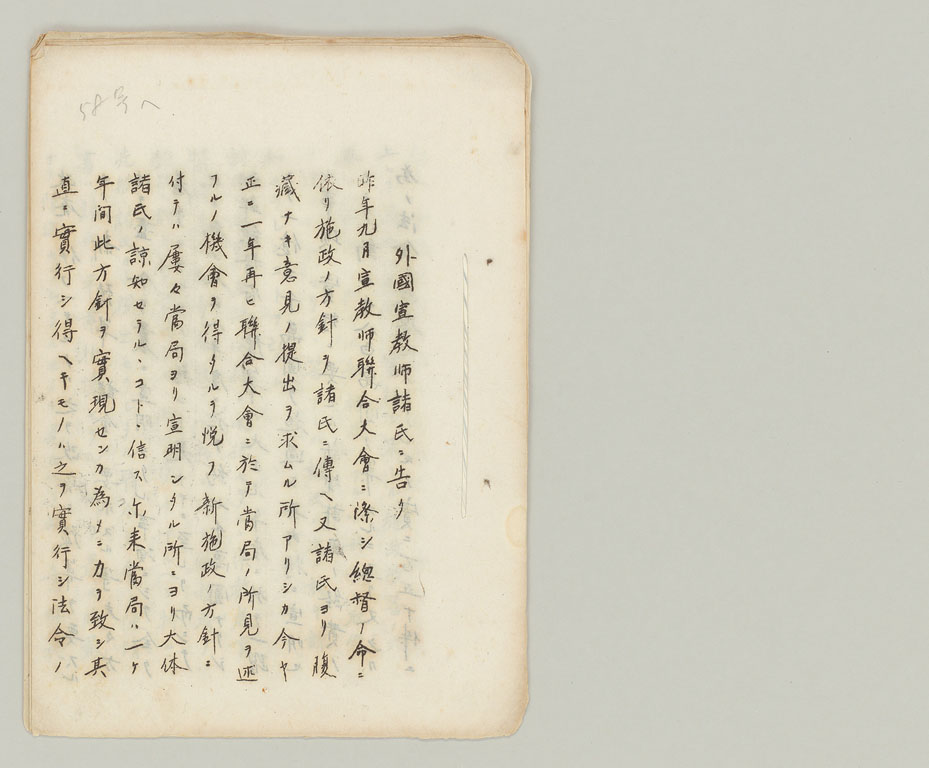 58号へ
外國宣教師諸氏ニ告ク
昨年九月宣教師聯合大會ニ際シ總督ノ命ニ
依リ施政ノ方針ヲ諸氏ニ傳ヘ又諸氏ヨリ腹
蔵ナキ意見ノ提出ヲ求ムル所アリシカ今ヤ
正ニ一年再ヒ聯合大會ニ於テ當局ノ所見ヲ述
フルノ機會ヲ得タルヲ悦フ新施政ノ方針ニ
付テハ屡々當局ヨリ宣明シタル所ニヨリ大体
諸氏ノ諒知セラルヽコトヽ信ス尓来當局ハ一ケ
年間此方針ヲ實現センカ為メニ力ヲ致シ其
直ニ實行シ得ヘキモノハ之ヲ實行シ法令ノ